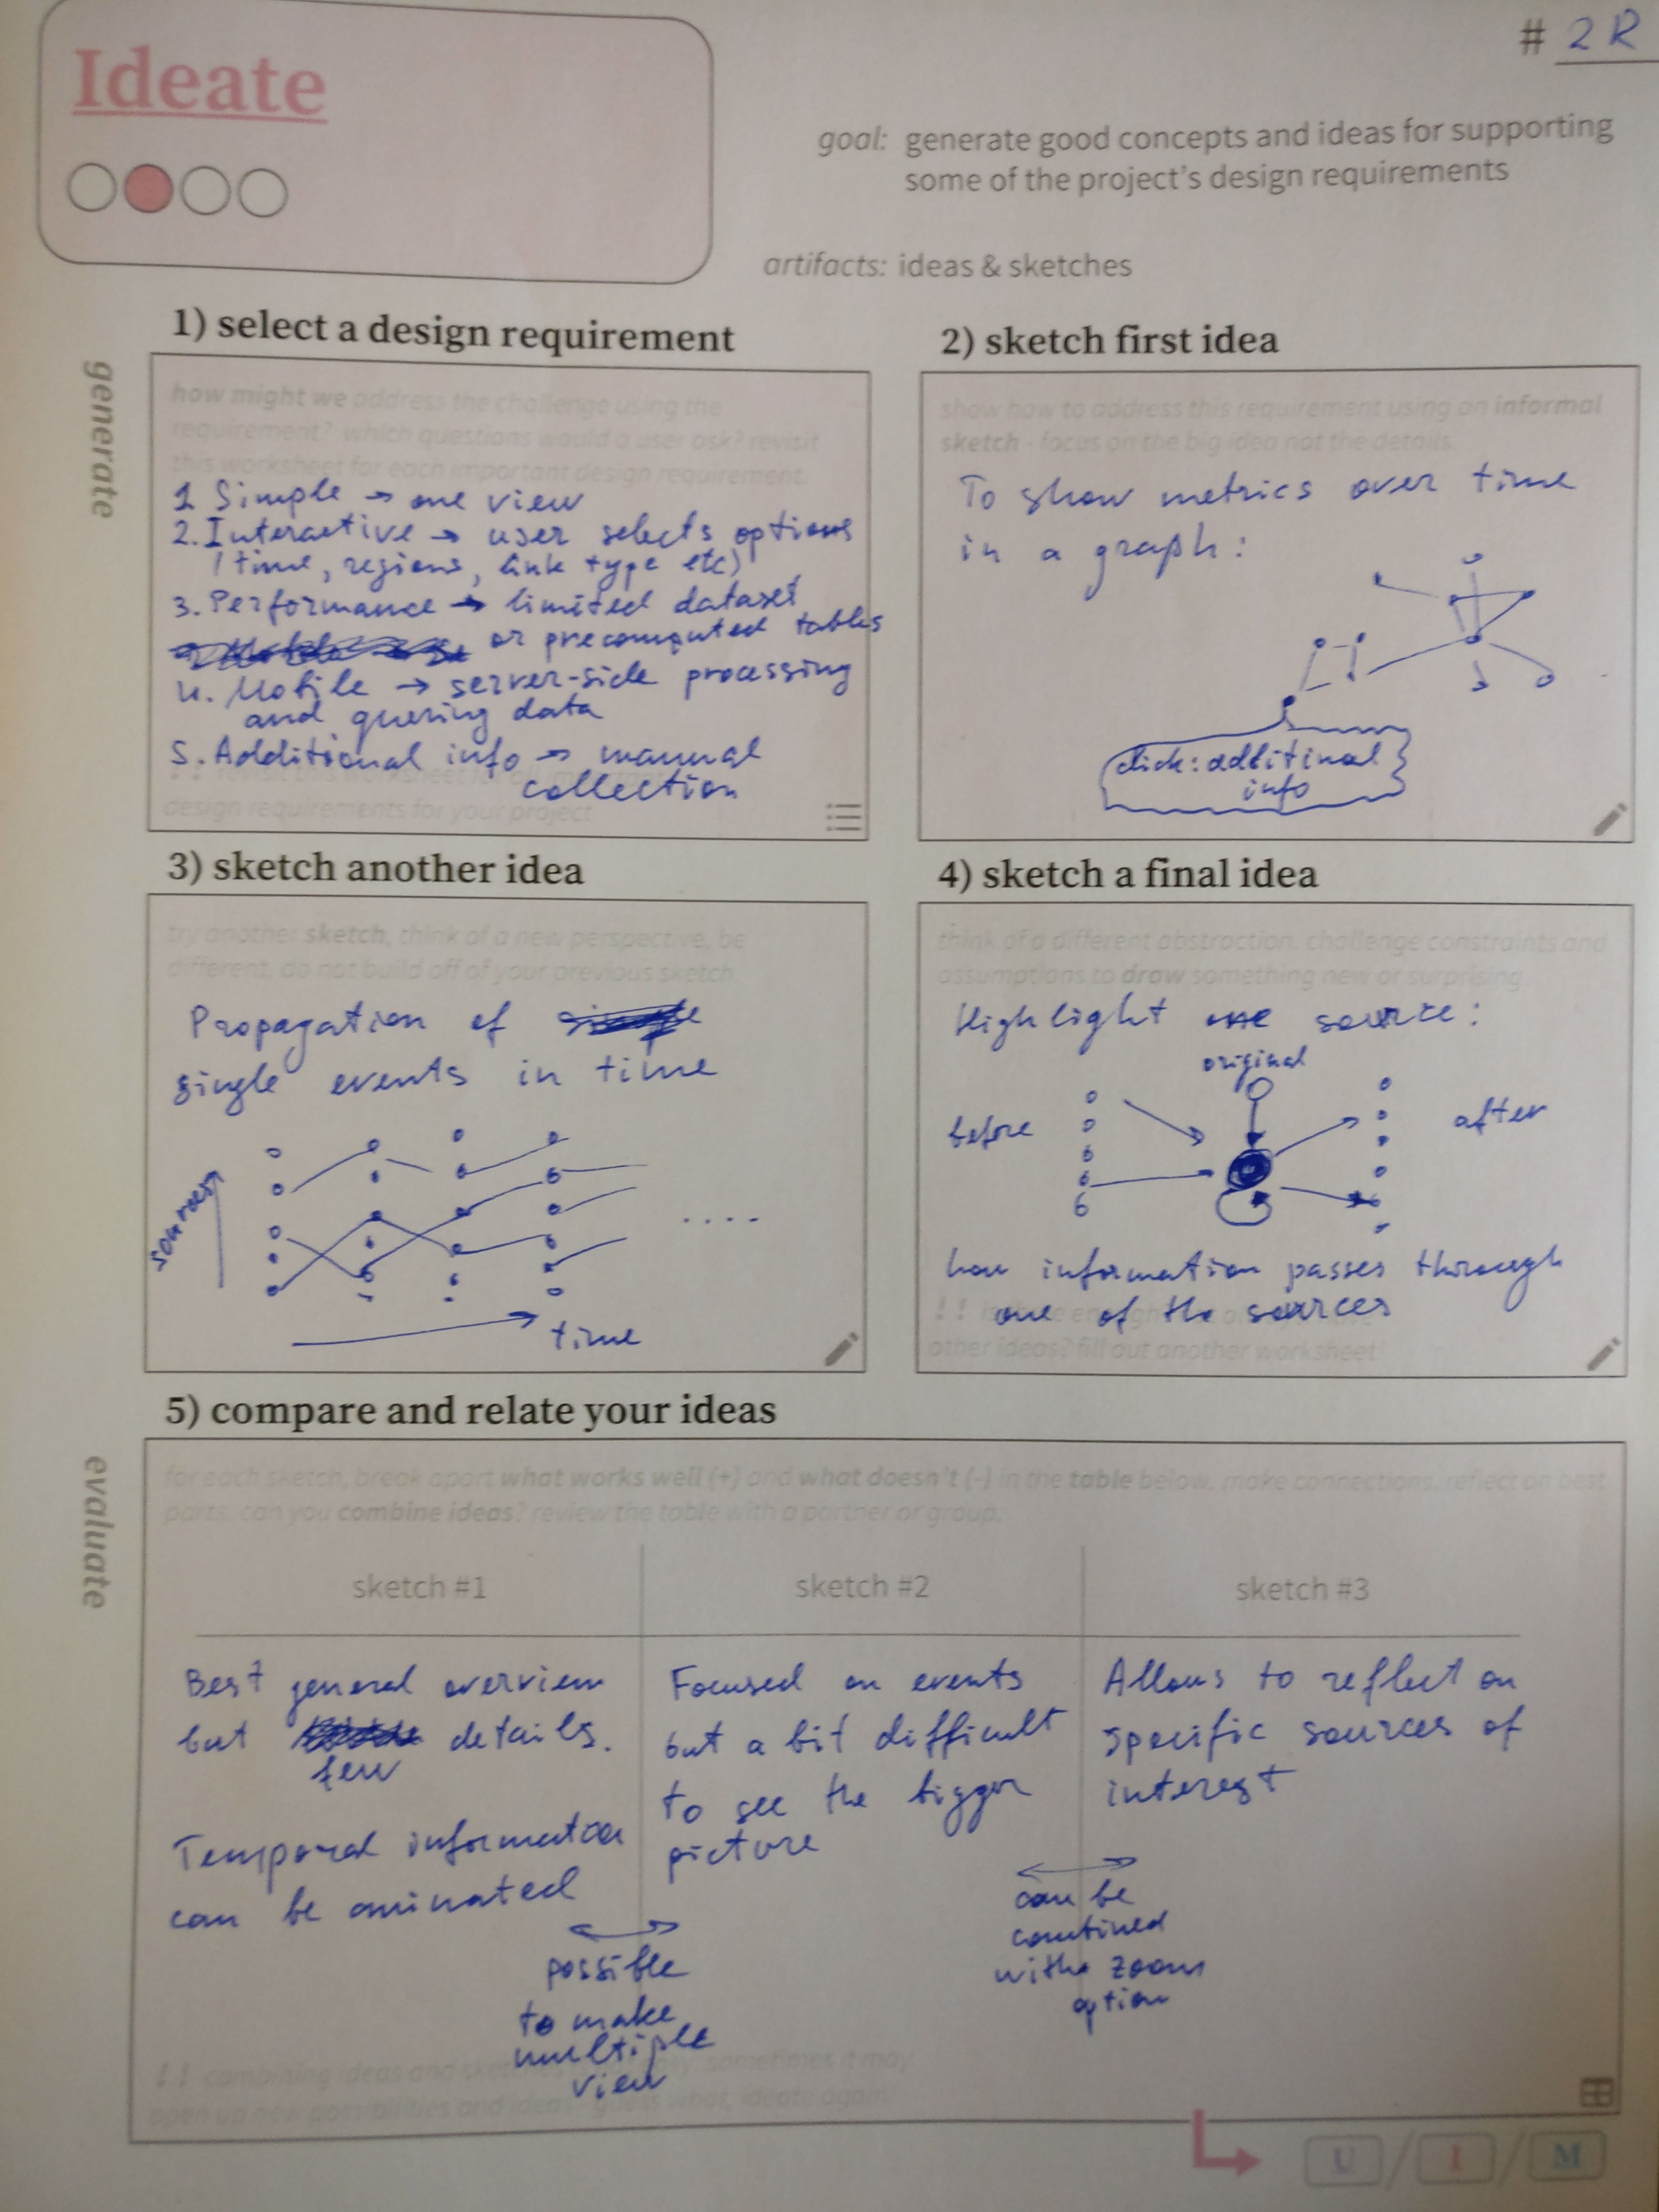 # 2R
Ideate
goal: generate good concepts and ideas for supporting
some of the project's design requirements
artifacts: ideas & sketches
generate
1) select a design requirement
how might we address the challenge using the
requirement? which questions would a user ask? revisit
this worksheet for each important design requirement.
1 Simple → one view
2. Interactive → user selects options
(time, regions, link type etc)
3. Performance → limited dataset
or precomputed tables
4. Mobile → server-side processing
and quering data
5. Additional info → manual
collection
!! revisit this worksheet
design requirements for your project
2) sketch first idea
show how to address this requirement using an informal
sketch - focus on the big idea not the details.
To show metrics over time
in a graph:
click: additinal
info
3) sketch another idea
try another sketch, think of a new perspective, be
different, do not build off of your previous sketch.
Propagation of
single events in time
sources
....
time
4) sketch a final idea
think of a different abstraction. challenge constraints and
assumptions to draw something new or surprising.
Highlight one source:
original
before
after
how information passes through
one of the sources
other ideas? fill out another worksheet!
evaluate
5) compare and relate your ideas
for each sketch, break apart what works well (+) and what doesn't (-) in the table below. make connections. reflect on best
parts. can you combine ideas? review the table with a partner or group.
sketch #1
sketch #2
sketch #3
Best general overview
but details.
few
Temporal information
can be animated
Focused on events
but a bit difficult
to see the bigger
picture
Allows to reflect on
specific sources of
interest
possible
to make
multiple
view
can be
combined
with a zoom
option
!! combining ideas and sometimes it may
open up new possibilities and ideas guess what, ideate again!
U / I / M